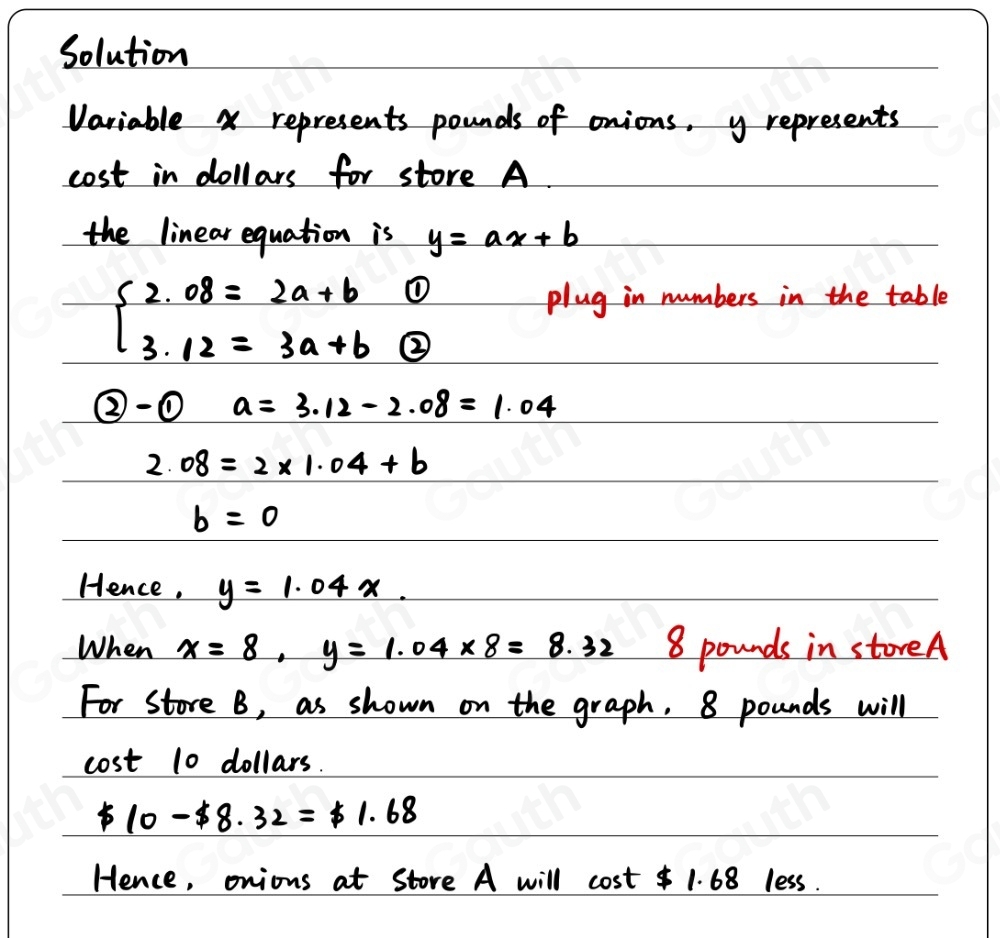 Solution
Variable x represents pounds of onions, y represents
cost in dollars for store A.
the linear equation is y = ax + b
{ 2.08 = 2a + b ①
plug in numbers in the table
3.12 = 3a + b ②
② - ① a = 3.12 - 2.08 = 1.04
2.08 = 2 × 1.04 + b
b = 0
Hence, y = 1.04x.
When x = 8, y = 1.04 × 8 = 8.32 8 pounds in store A
For Store B, as shown on the graph, 8 pounds will
cost 10 dollars.
$10 - $8.32 = $1.68
Hence, onions at Store A will cost $1.68 less.
Gauth